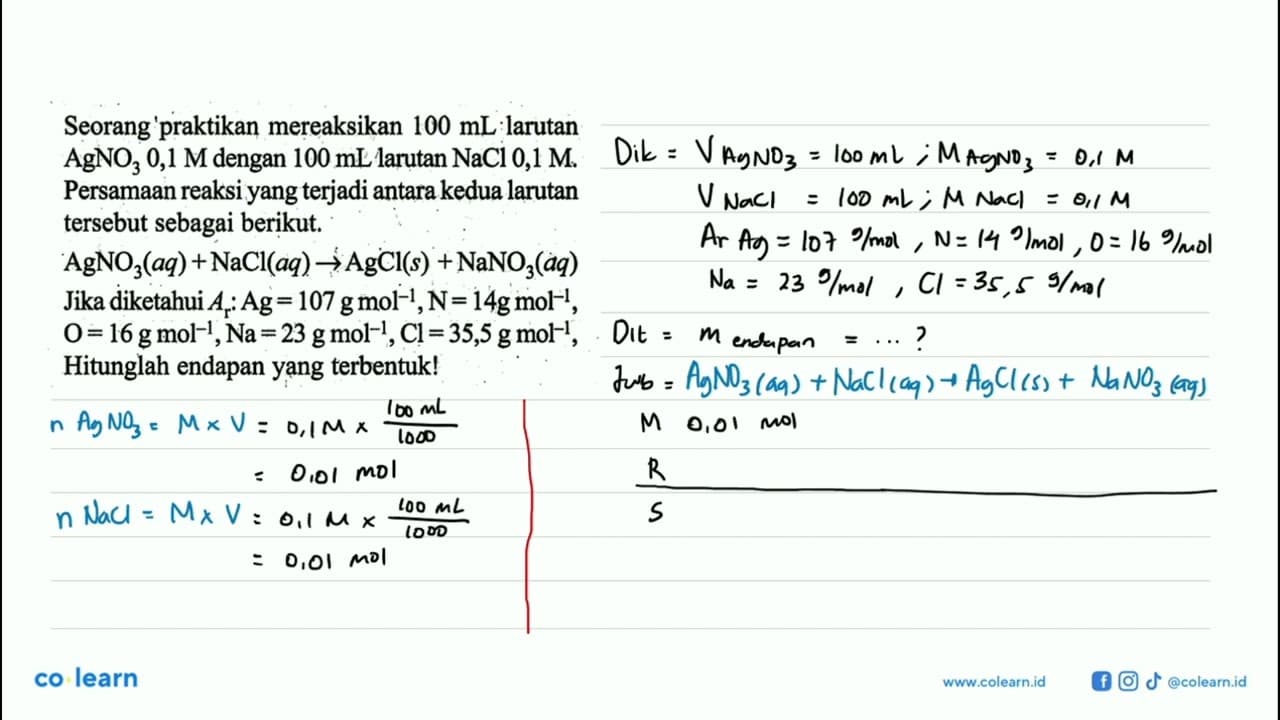 Seorang praktikan mereaksikan 100 mL larutan
AgNO₃ 0,1 M dengan 100 mL larutan NaCl 0,1 M.
Persamaan reaksi yang terjadi antara kedua larutan
tersebut sebagai berikut.
AgNO₃(aq) + NaCl(aq) → AgCl(s) + NaNO₃(aq)
Jika diketahui Aᵣ: Ag = 107 g mol⁻¹, N = 14g mol⁻¹,
O = 16 g mol⁻¹, Na = 23 g mol⁻¹, Cl = 35,5 g mol⁻¹,
Hitunglah endapan yang terbentuk!
n AgNO₃ = M × V = 0,1 M × 100 mL / 1000
= 0,01 mol
n NaCl = M × V = 0,1 M × 100 mL / 1000
= 0,01 mol
Dik = V AgNO₃ = 100 mL ; M AgNO₃ = 0,1 M
V NaCl = 100 mL ; M NaCl = 0,1 M
Ar Ag = 107 g/mol , N = 14 g/mol , O = 16 g/mol
Na = 23 g/mol , Cl = 35,5 g/mol
Dit = m endapan = ... ?
Jwb = AgNO₃ (aq) + NaCl (aq) → AgCl (s) + NaNO₃ (aq)
M 0,01 mol
R
S
co learn
www.colearn.id
@colearn.id